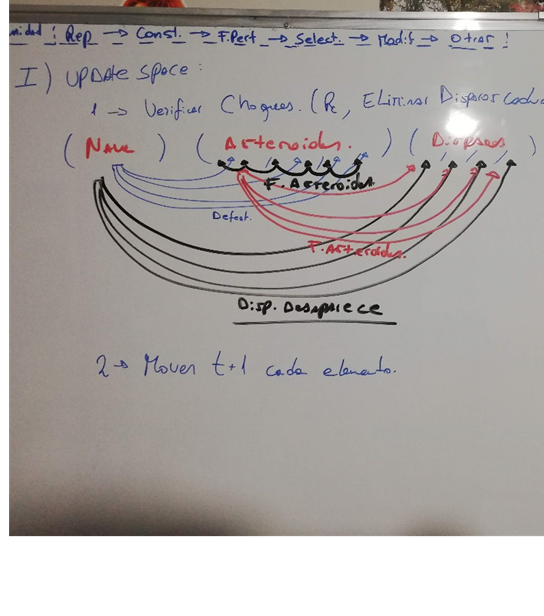 nidad : Rep → Const. → F.Pert → Select. → Modif → Otras !
I) UPDATE SPACE :
1 → Verificar Choques. (Rc, Eliminar Disparos Caduc
( Nave ) ( Asteroides. ) ( Disparos )
F. Asteroides.
Defeat.
F. Asteroides.
Disp. Desaparece
2 → Mover t+1 cada elemento.